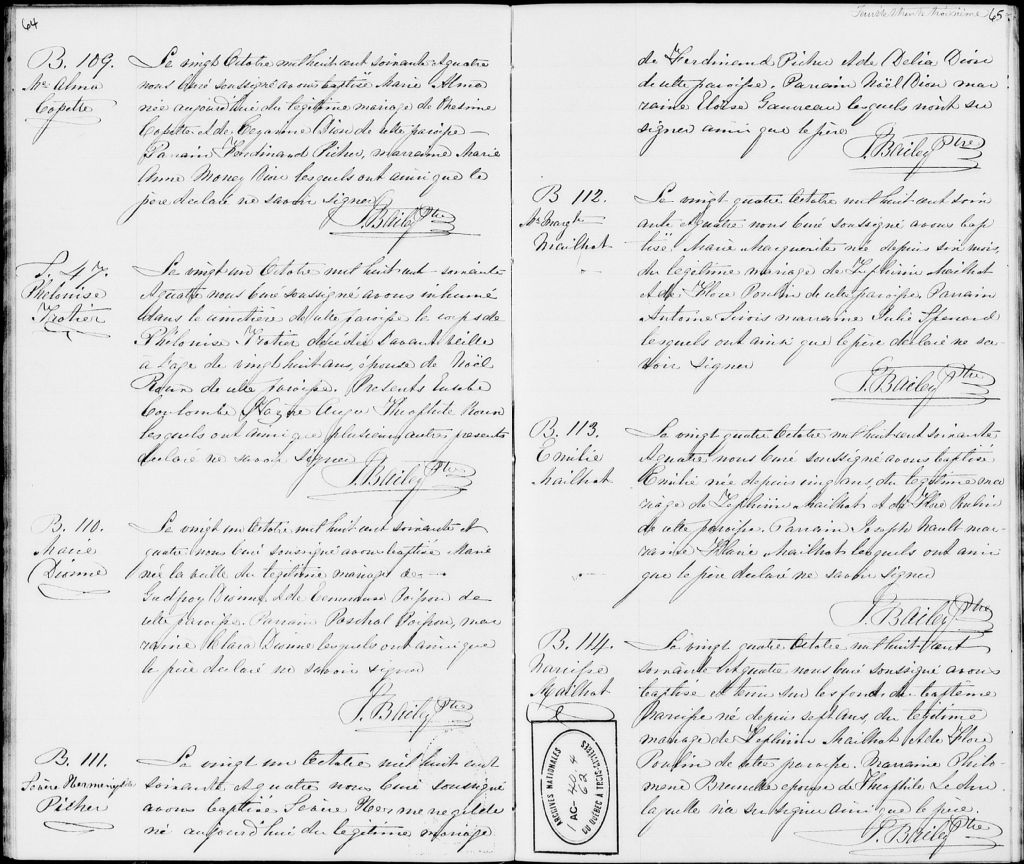 64
B. 109.
Mie Alma
Copette
Le vingt Octobre mil huit cent soixante et quatre
nous Curé soussigné avons baptisé Marie Alma
née aujourd'hui du légitime mariage de Onesime
Copette et de Cezarinne Dion de cette paroisse —
Parrain Ferdinand Picher, marraine Marie
Anne Money Dion lesquels ont ainsi que le
père déclaré ne savoir signer
J. Bailey Ptre
S. 47.
Phelonise
Trotier
Le vingt un Octobre mil huit cent soixante
et quatre nous Curé soussigné avons inhumé
dans le cimetière de cette paroisse le corps de
Phélonise Trotier décédée l'avant veille
à l'age de vingt huit ans, épouse de Noël
de cette paroisse. Présents Eusèbe
Coulombe Auger Théophile
lesquels ont ainsi que plusieurs autres présents
déclaré ne savoir signer
J. Bailey Ptre
B. 110.
Marie
Dionne
Le vingt un Octobre mil huit cent soixante et
quatre nous Curé soussigné avons baptisé Marie
née la veille du légitime mariage de —
Godfroy Dionne et de Poisson de
cette paroisse. Parrain Paschal Poisson, mar
raine Clara Dionne lesquels ont ainsi que
le père déclaré ne savoir signer
J. Bailey Ptre
B. 111.
Sévère Hermenegilde
Picher
Le vingt un Octobre mil huit cent
soixante et quatre nous Curé soussigné
avons baptisé Sévère Hermenegilde
né aujourd'hui du légitime mariage
Feuille trente troisième 65
de Ferdinand Picher et de Delia Dion
de cette paroisse. Parrain Noël Dion mar
raine Eloïse Gauvreau lesquels n'ont su
signer ainsi que le père
J. Bailey Ptre
B 112.
Mie Margte
Mailhot
Le vingt quatre Octobre mil huit cent soix
ante et quatre nous Curé soussigné avons bap
tisé Marie Marguerite née depuis six mois,
du légitime mariage de Zephirin Mailhot
et de Flore Poulin de cette paroisse. Parrain
Antoine Sirois marraine Julie Spénard
lesquels ont ainsi que le père déclaré ne sa
voir signer
J. Bailey Ptre
B. 113.
Emilie
Mailhot
Le vingt quatre Octobre mil huit cent soixante
et quatre nous Curé soussigné avons baptisé
Emilie née depuis cinq ans, du légitime ma
riage de Zephirin Mailhot et de Flore Poulin
de cette paroisse. Parrain Joseph Hault mar
raine Marie Mailhot lesquels ont ainsi
que le père déclaré ne savoir signer
J. Bailey Ptre
B. 114.
Narcisse
Mailhot
Le vingt quatre Octobre mil huit cent
soixante et quatre nous Curé soussigné avons
baptisé et tenu sur les fonds du baptême
Narcisse né depuis sept ans, du légitime
mariage de Zephirin Mailhot et de Flore
Poulin de cette paroisse. Marraine Philo
mène Brunelle épouse de Théophile
laquelle n'a su signer ainsi que le père.
J. Bailey Ptre
ARCHIVES NATIONALES
1 AC- 40.4
62
DU QUÉBEC A TROIS-RIVIÈRES